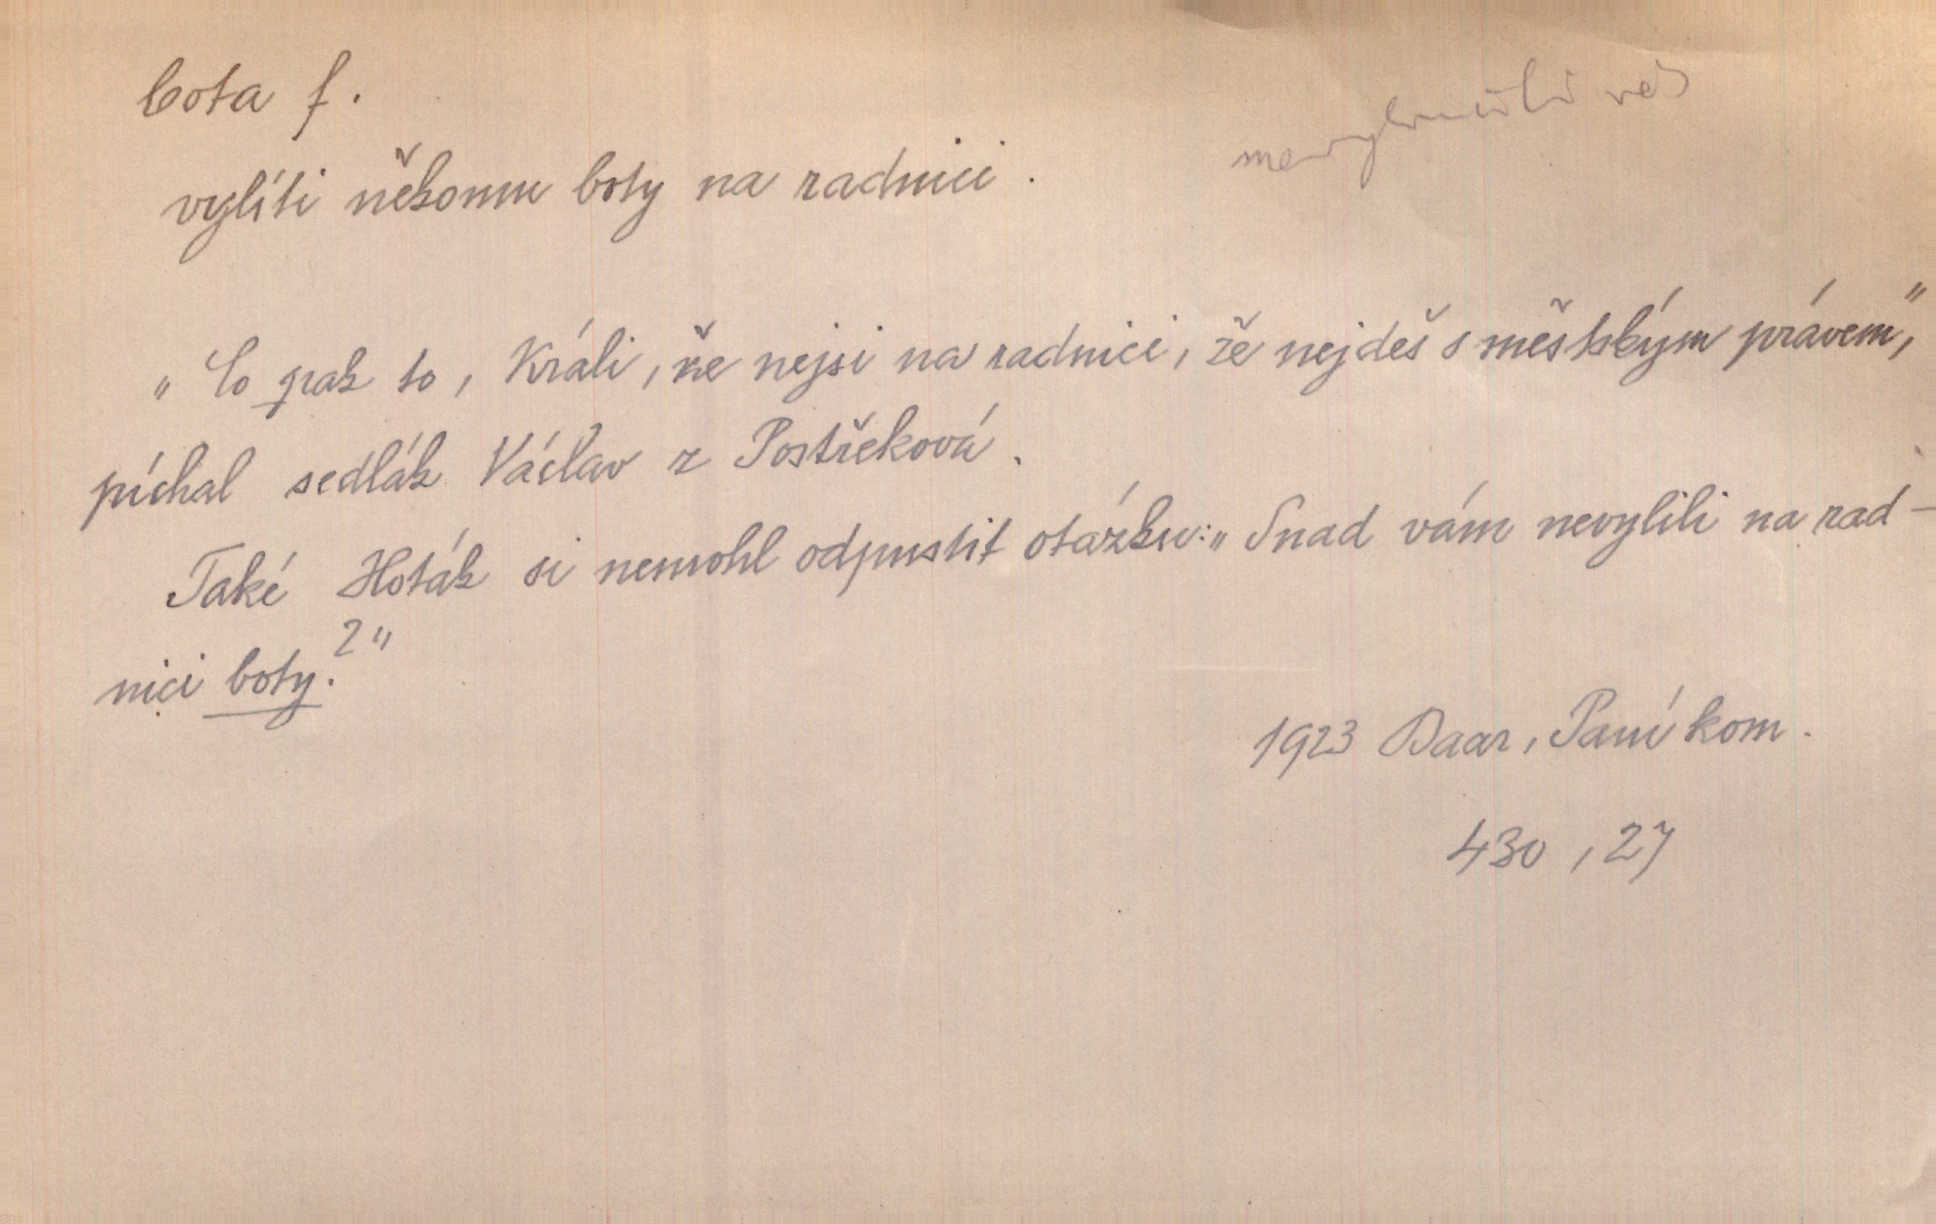 bota f.
vylíti někomu boty na radnici.
„Co pak to, Králi, že nejsi na radnici, že nejdeš s městským právem",
píchal sedlák Václav z Postřeková.
Také Hoták si nemohl odpustit otázku: „Snad vám nevylili na rad-
nici boty.?"
1923 Baar, Paní kom.
430, 27